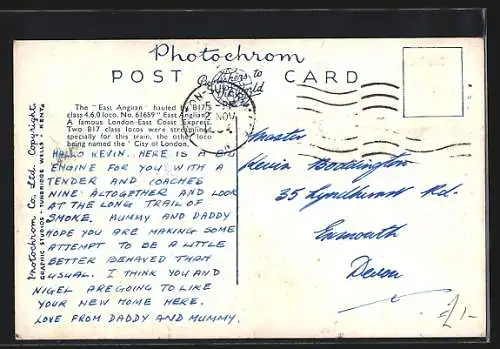 Photochrom
POST CARD
Publishers to
The "East Anglian" hauled by B17/5
class 4.6.0 loco. No. 61659 "East Anglian."
A famous London-East Coast Express.
Two B17 class locos were streamlined
specially for this train, the other loco
being named the "City of London."
HALLO KEVIN. HERE IS A BIG
ENGINE FOR YOU WITH A
TENDER AND COACHES
NINE ALTOGETHER AND LOOK
AT THE LONG TRAIL OF
SMOKE. MUMMY AND DADDY
HOPE YOU ARE MAKING SOME
ATTEMPT TO BE A LITTLE
BETTER BEHAVED THAN
USUAL. I THINK YOU AND
NIGEL ARE GOING TO LIKE
YOUR NEW HOME HERE.
LOVE FROM DADDY AND MUMMY.
Photochrom Co. Ltd. Copyright.
GRAPHIC STUDIOS · TUNBRIDGE WELLS · KENT
2 NOV
Master
Kevin Boddington
35 Lyndhurst Rd.
Exmouth
Devon
£1-